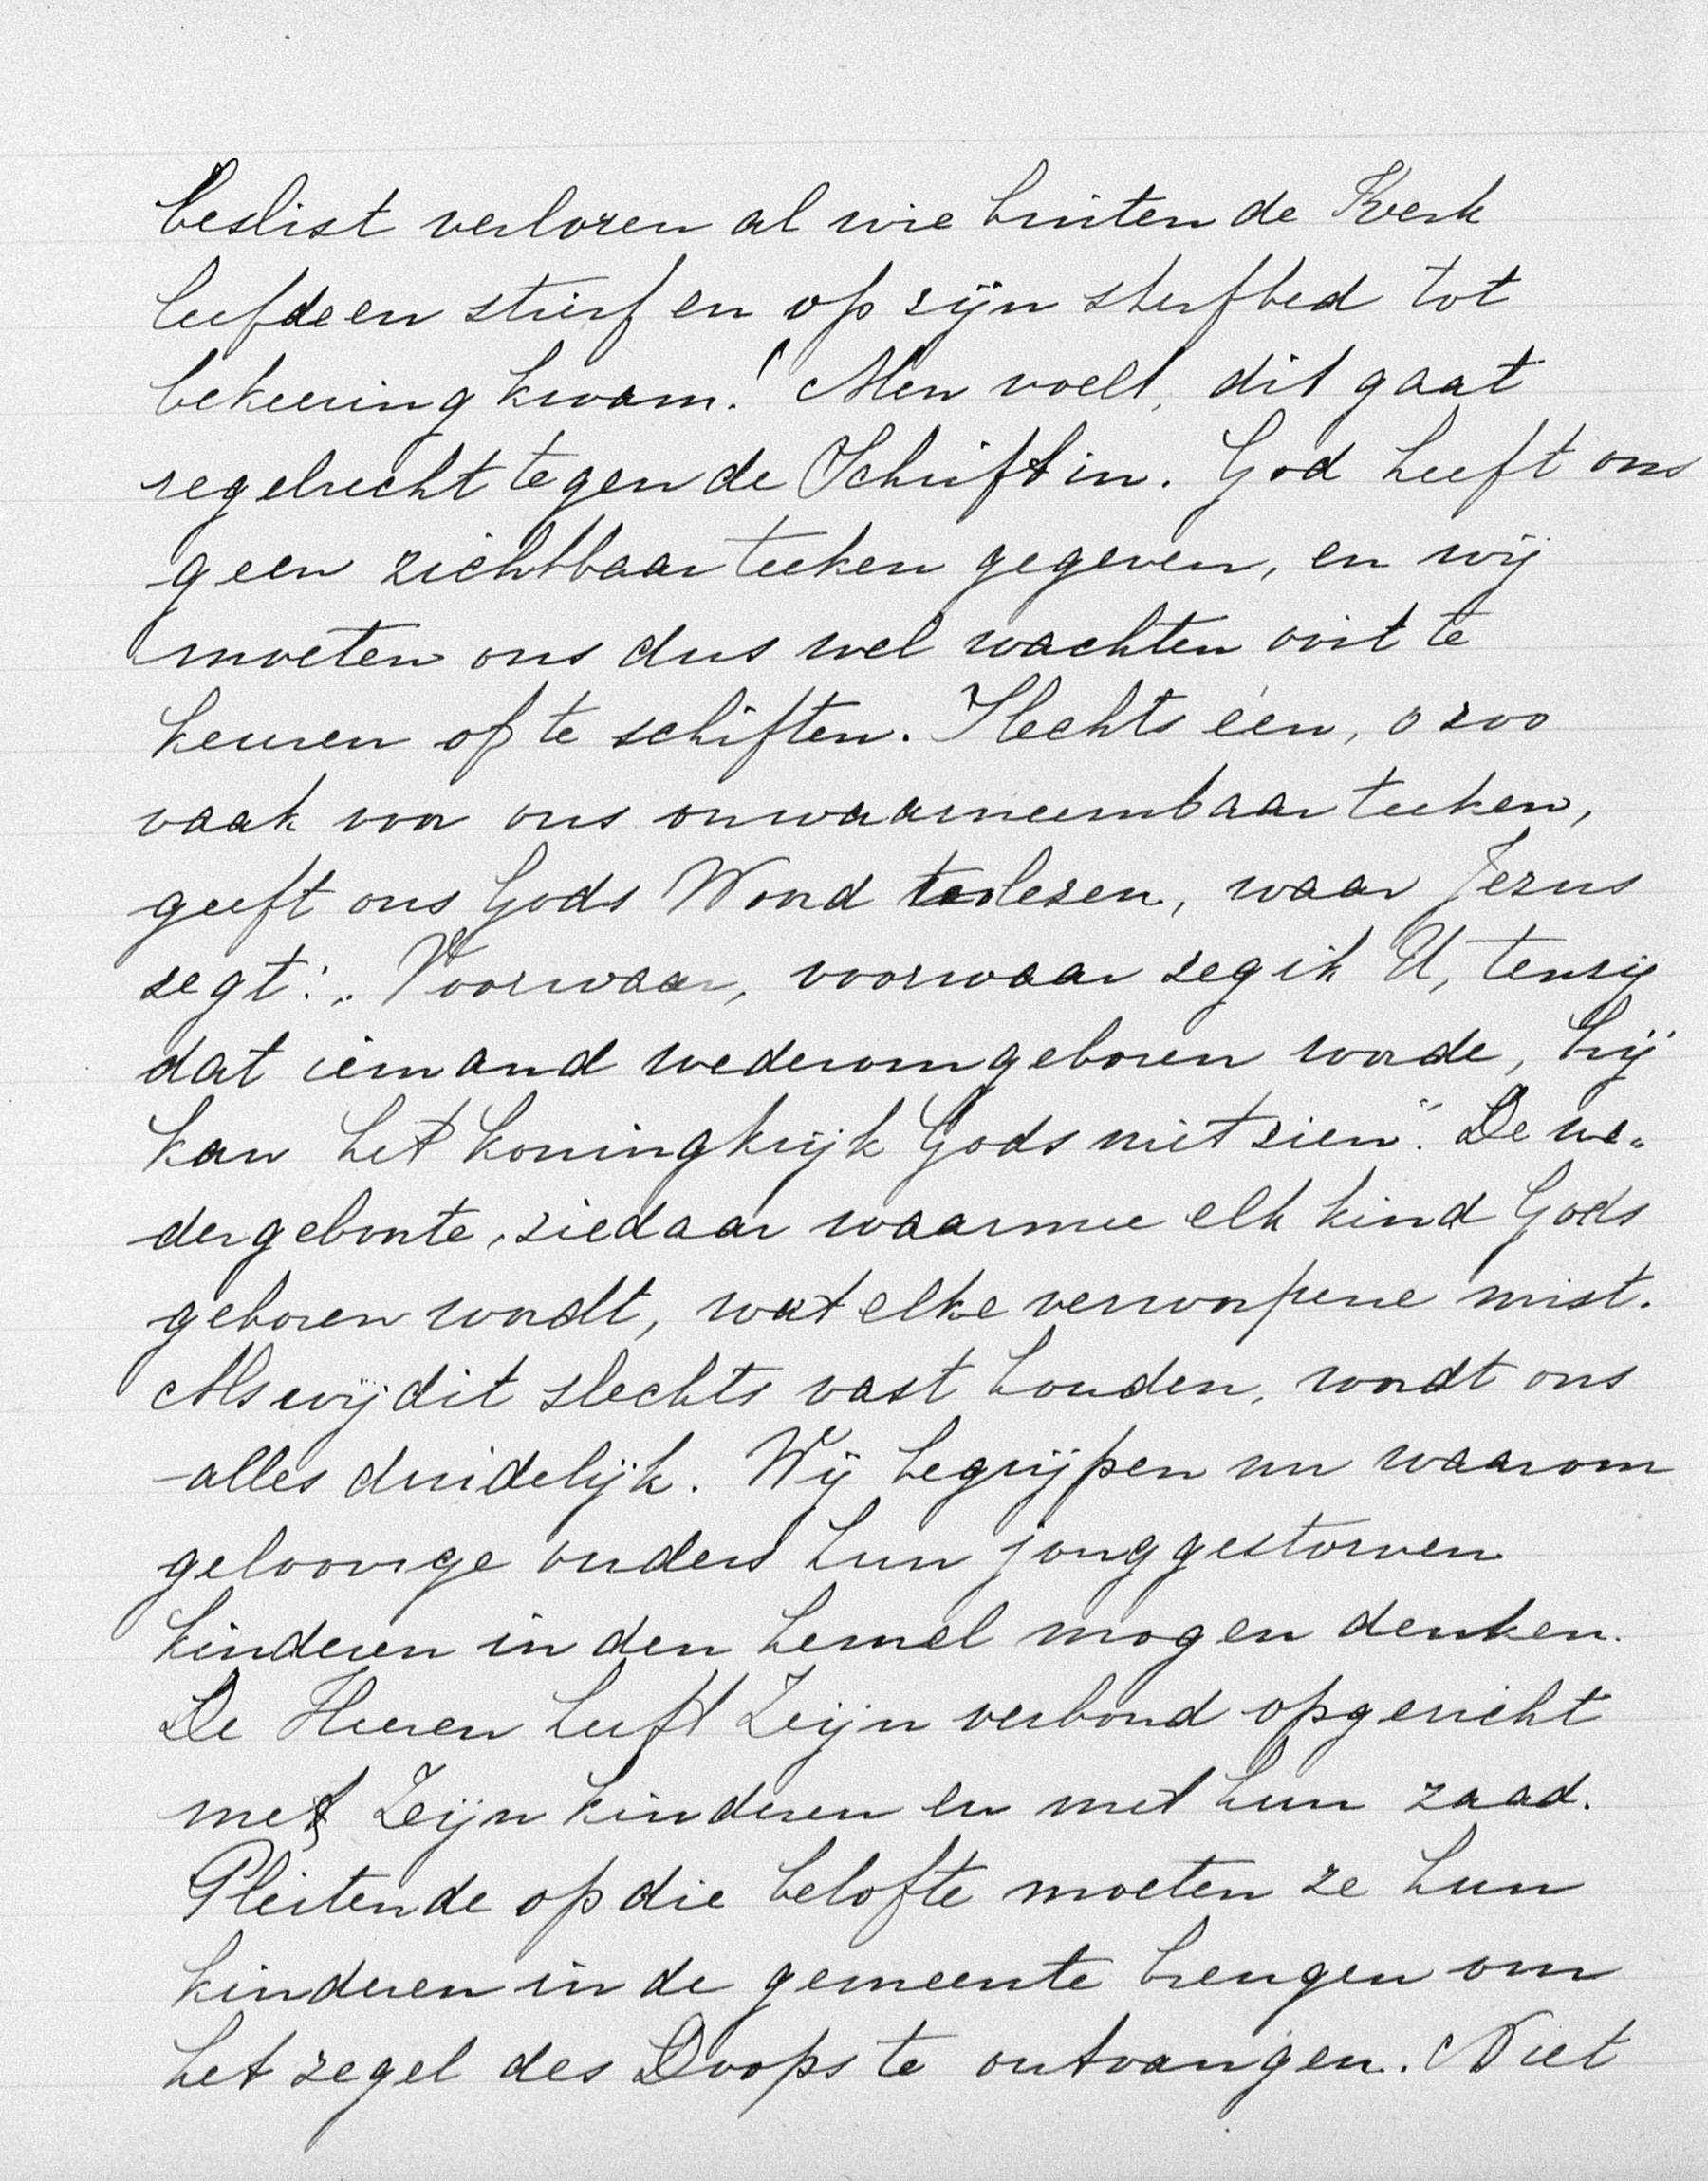 beslist verloren al wie buiten de Kerk
leefde en stierf en op zijn sterfbed tot
bekeering kwam! Men voelt, dit gaat
regelrecht tegen de Schrift in. God heeft ons
geen zichtbaar teeken gegeven, en wij
moeten ons dus wel wachten ooit te
keuren of te schiften. Slechts één, o zoo
vaak voor ons onwaarneembaar teeken,
geeft ons Gods Woord te lezen, waar Jezus
zegt: „Voorwaar, voorwaar zeg ik U, tenzij
dat iemand wederomgeboren worde, hij
kan het koningkrijk Gods niet zien". De we-
dergeboorte, ziedaar waarmee elk kind Gods
geboren wordt, wat elke verworpene mist.
Als wij dit slechts vast houden, wordt ons
alles duidelijk. Wij begrijpen nu waarom
geloovige ouders hun jonggestorven
kinderen in den hemel mogen denken.
De Heeren heeft Zeijn verbond opgericht
met Zeijn kinderen en met hun zaad.
Pleitende op die belofte moeten ze hun
kinderen in de gemeente brengen om
het zegel des Doops te ontvangen. Niet